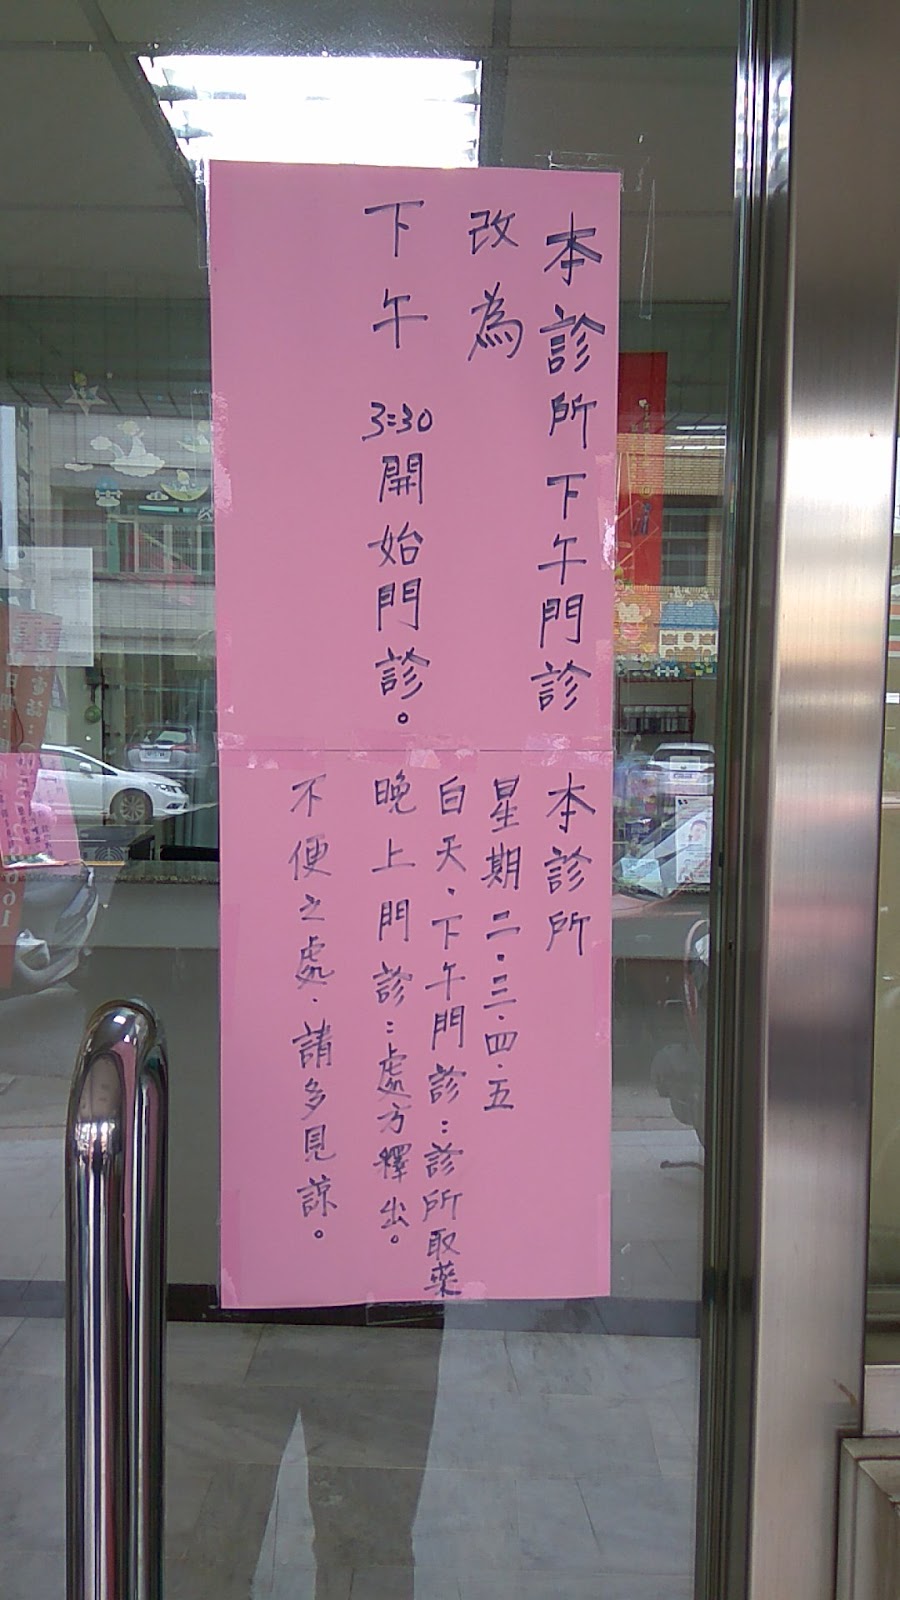 本診所下午門診
改為
下午 3:30開始門診。
本診所
星期二.三.四.五
白天、下午門診:診所取藥
晚上門診:處方釋出。
不便之處.請多見諒。